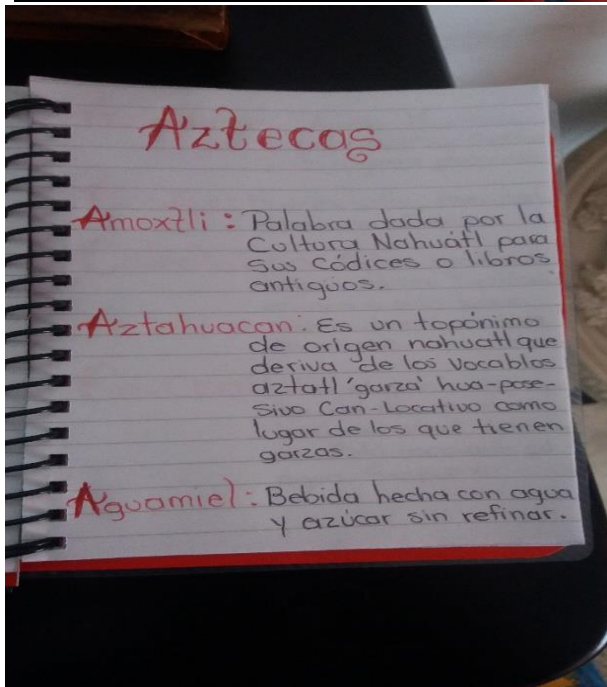 Aztecas
Amoxtli: Palabra dada por la
Cultura Nahuátl para
sus Códices o libros
antigüos.
Aztahuacan: Es un topónimo
de origen nahuatl que
deriva de los vocablos
aztatl 'garza' hua-pose-
sivo Can-Locativo como
lugar de los que tienen
garzas.
Aguamiel: Bebida hecha con agua
y azúcar sin refinar.